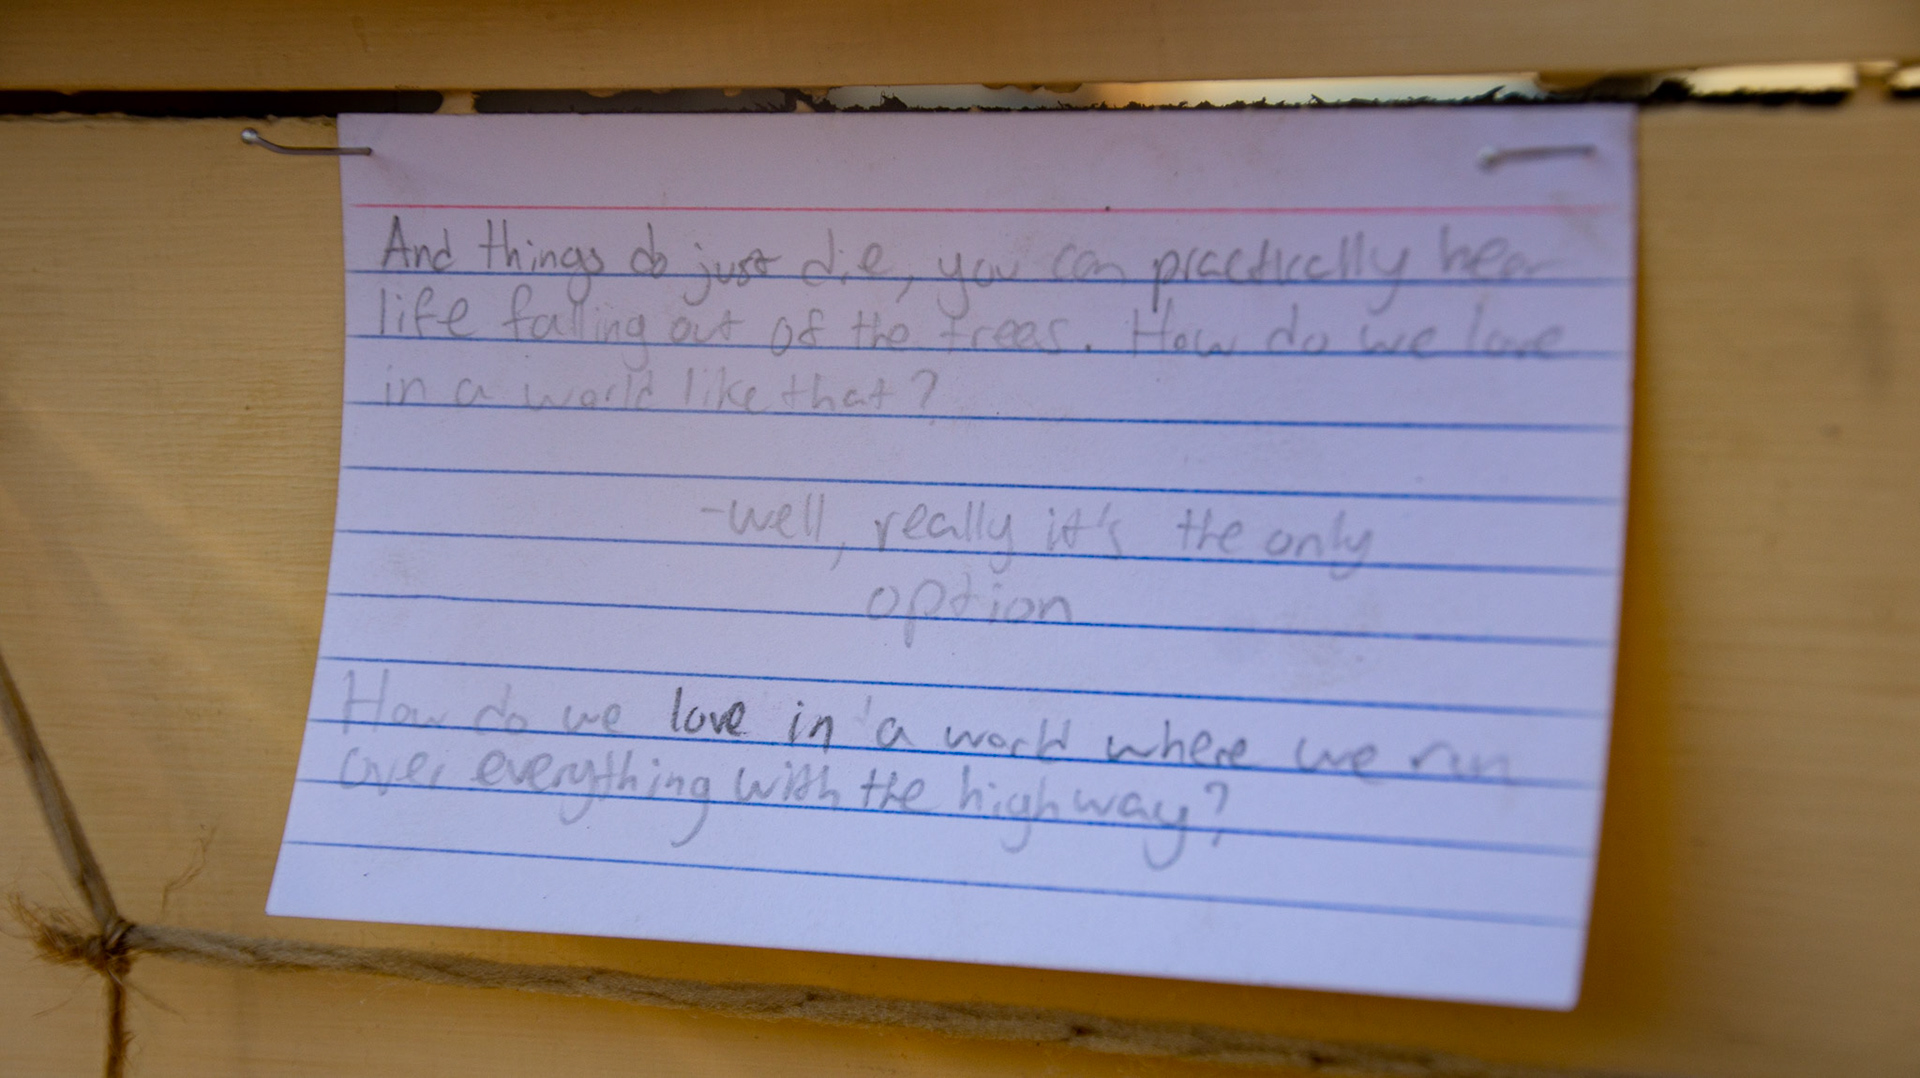 And things do just die, you can practically hear
life falling out of the trees. How do we love
in a world like that?
-well, really it's the only
option
How do we love in a world where we run
over everything with the highway?